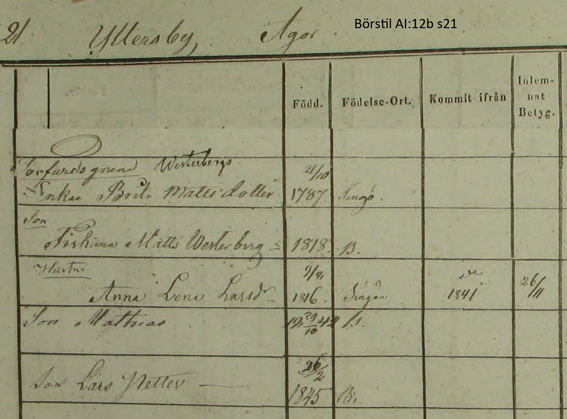 21. Yttersby Ägor
Börstil AI:12b s21
Född. Födelse-Ort. Kommit ifrån Inlem-nat Betyg.
Westerbergs 21/10
Enkan Brita Matts dotter 1787 Singö.
Son
Fiskaren Matts Westerberg 1818 B.
Hustru 9/8
Anna Lena Larsd. 1816. Singön 1841 26/11
Son Mathias 18 29/10 42 B.
26/2
Son Lars Petter 1845 B.